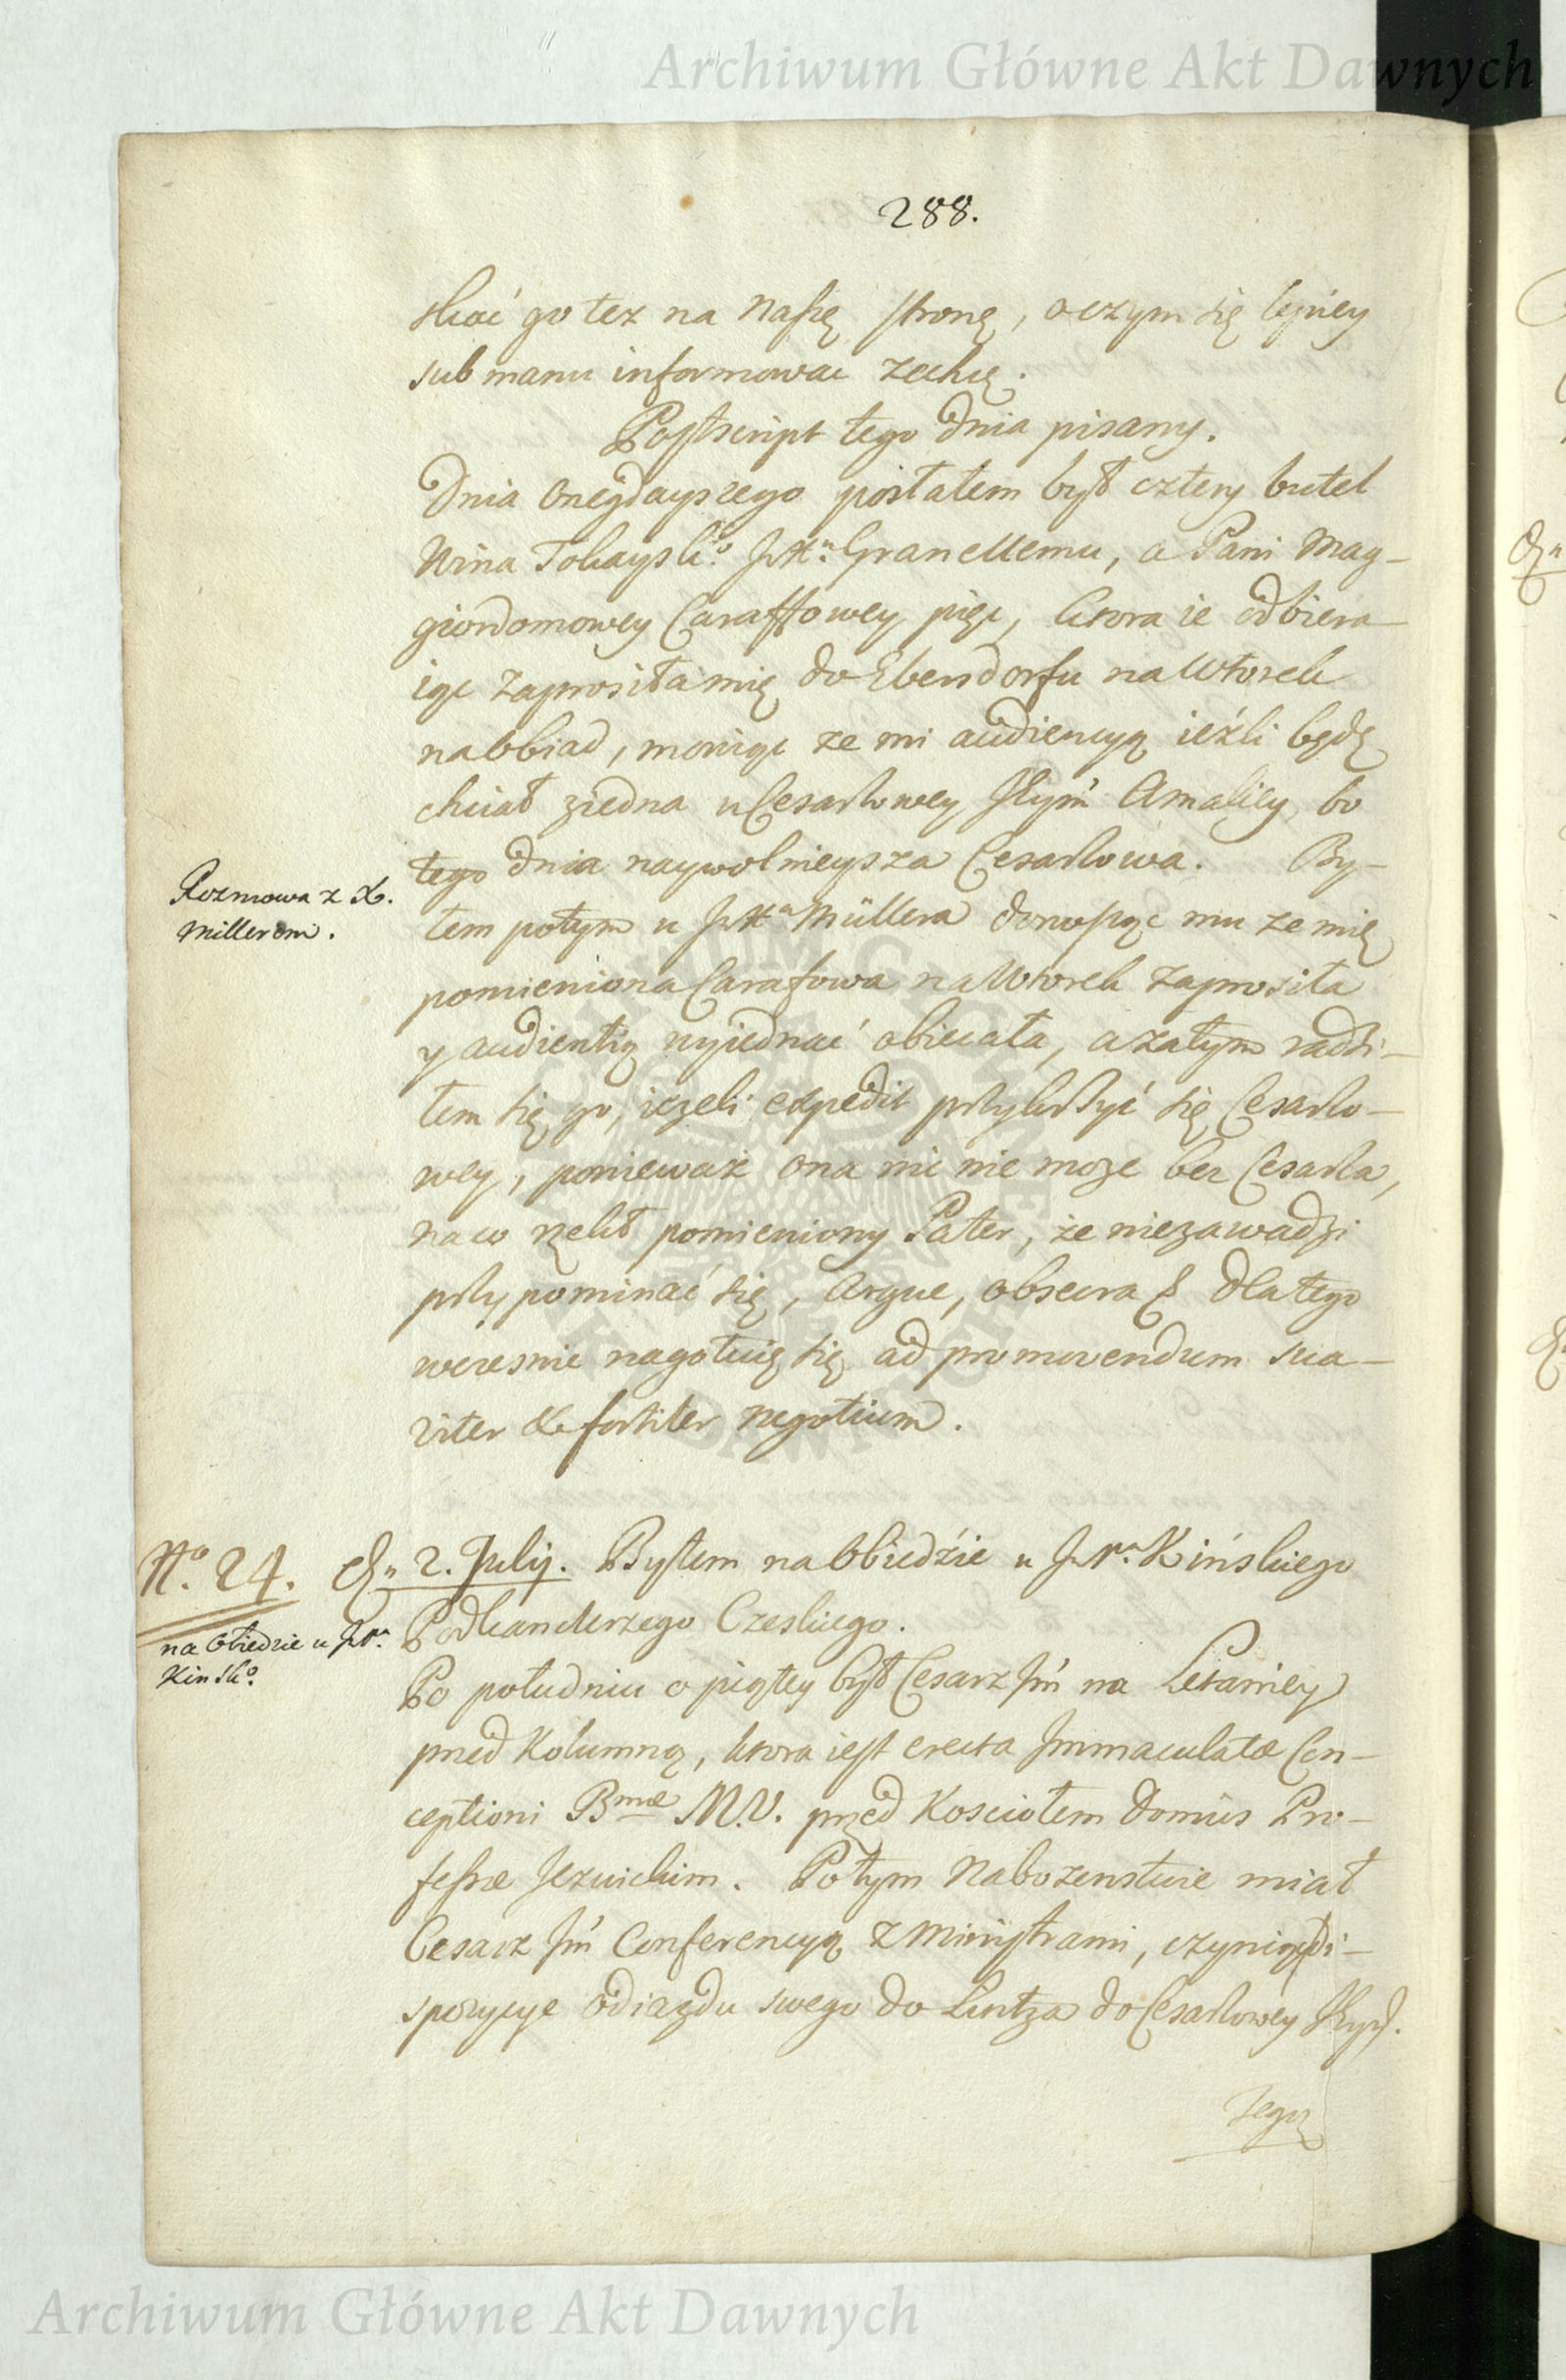 Archiwum Główne Akt Dawnych
288.
skać go tez na naszę stronę, o czym się lepiey
sub manu informowac zechcę.
Postscript tego dnia pisany.
Dnia onegdayszego posłałem był cztery butel
Wina Tokaysko Granellemu, a Pani Mag-
giordomowey Caraffowey pięc, ktora ie odbiera
iąc zaprosiła mię do Ebersdorfu na Wtorek
na Obiad, moniąc ze mi audiencyą ieźli będę
chciał ziedna u Cesarzowey Amaliey, bo
tego dnia naywolnieysza Cesarzowa. By-
Rozmowa z X.
Millerem.
łem potym u Müllera donosząc mu ze mię
pomieniona Carafowa na Wtorek zaprosiła
y audientią wyiednać obiecała, a zatym radzi-
łem się go, iezeli expedit przykrzyć się Cesarzo-
wey, ponieważ ona nic nie moze bez Cesarza,
na co rzekł pomieniony Pater, że niezawadzi
przypominać się, argue, obsecra & dla tego
wczesnie nagotuię się ad promovendum sua-
viter & fortiter negotium.
No. 24. 2. Julij. Byłem na Obiedźie u Kińskiego
na Obiedzie u
Kinsko
Podkanclerzego Czeskiego.
Po południu o piątey był Cesarz Jm na Letaniey
przed Kolumną, ktora iest erecta Immaculatæ Con-
ceptioni Bmæ M.V. przed Kosciołem Domus Pro-
fessæ Jezuickim. Po tym Nabozenstwie miał
Cesarz Jm Conferencyą z Ministrami, czyniąc di-
spozycye odiazdu swego do Lintza do Cesarzowey
Tegoż
Archiwum Główne Akt Dawnych